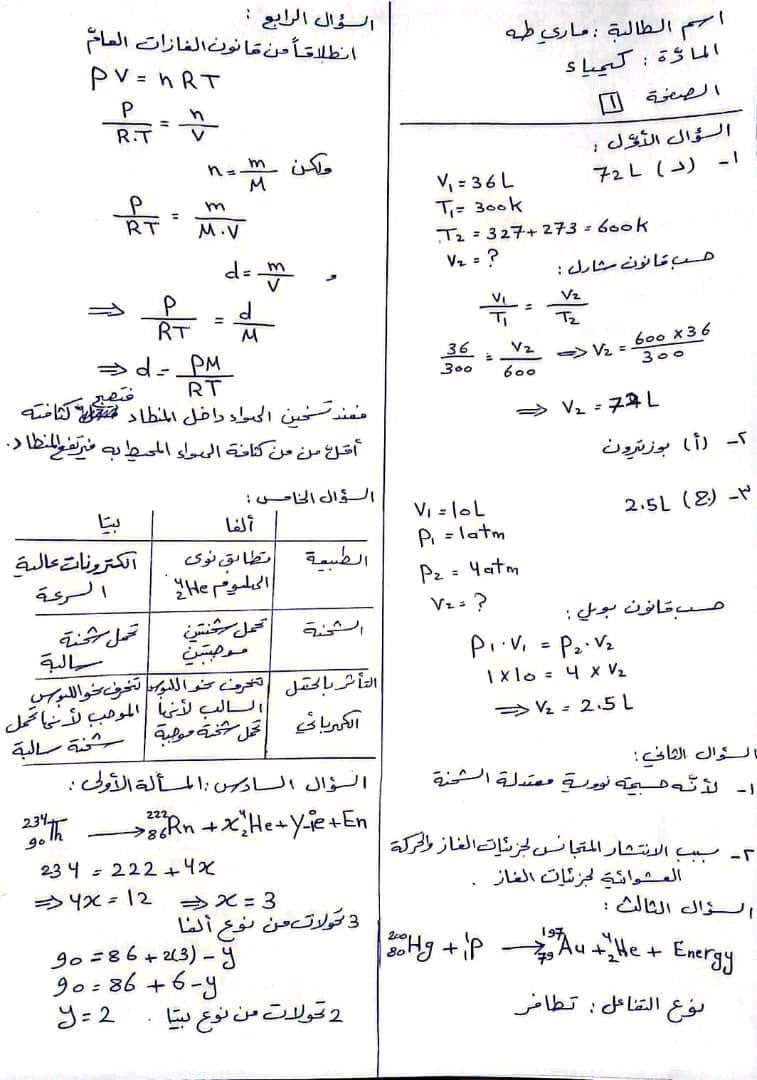 اسم الطالبة : ماري طه
المادّة : كيمياء
الصفحة 1
السؤال الأوّل :
1- (د) 72L
V₁ = 36L
T₁ = 300k
T₂ = 327+273 = 600k
V₂ = ?
حسب قانون شارل :
V₁/T₁ = V₂/T₂
36/300 = V₂/600 ⇒ V₂ = 600 x 36/300
⇒ V₂ = 72L
٢- (أ) بوزيترون
٣- (ج) 2.5L
V₁ = 10L
P₁ = 1atm
P₂ = 4atm
V₂ = ?
حسب قانون بويل :
P₁.V₁ = P₂.V₂
1 x 10 = 4 x V₂
⇒ V₂ = 2.5L
السؤال الثاني :
1- لأنّه جسيمة نووية معتدلة الشحنة
٢- بسبب الانتشار المتجانس لجزيئات الغاز والحركة
العشوائية لجزيئات الغاز .
السؤال الثالث :
²⁰⁰₈₀Hg + ¹₁P → ¹⁹⁷₇₉Au + ⁴₂He + Energy
نوع التفاعل : تطافر
السؤال الرابع :
انطلاقاً من قانون الغازات العامّ
PV = nRT
P/R.T = n/V
ولكن n = m/M
P/RT = m/M.V
و d = m/V
⇒ P/RT = d/M
⇒ d = PM/RT
فعند تسخين الهواء داخل المنطاد فتصبح كثافته
أقل من من كثافة الهواء المحيط به فيرتفع المنطاد.
السؤال الخامس :
ألفا بيتا
الطبيعة تطابق نوى الهليوم ⁴₂He الكترونات عالية السرعة
الشحنة تحمل شحنتين موجبتين تحمل شحنة سالبة
التأثر بالحقل الكهربائي تنحرف نحو اللبوس السالب لأنها تحمل شحنة موجبة تنحرف نحو اللبوس الموجب لأنها تحمل شحنة سالبة
السؤال السادس : المسألة الأولى :
²³⁴₉₀Th → ²²²₈₆Rn + x⁴₂He + y⁰₋₁e + En
234 = 222 + 4x
⇒ 4x = 12 ⇒ x = 3
3 تحولات من نوع ألفا
90 = 86 + 2(3) - y
90 = 86 + 6 - y
y = 2 2 تحولات من نوع بيتا .